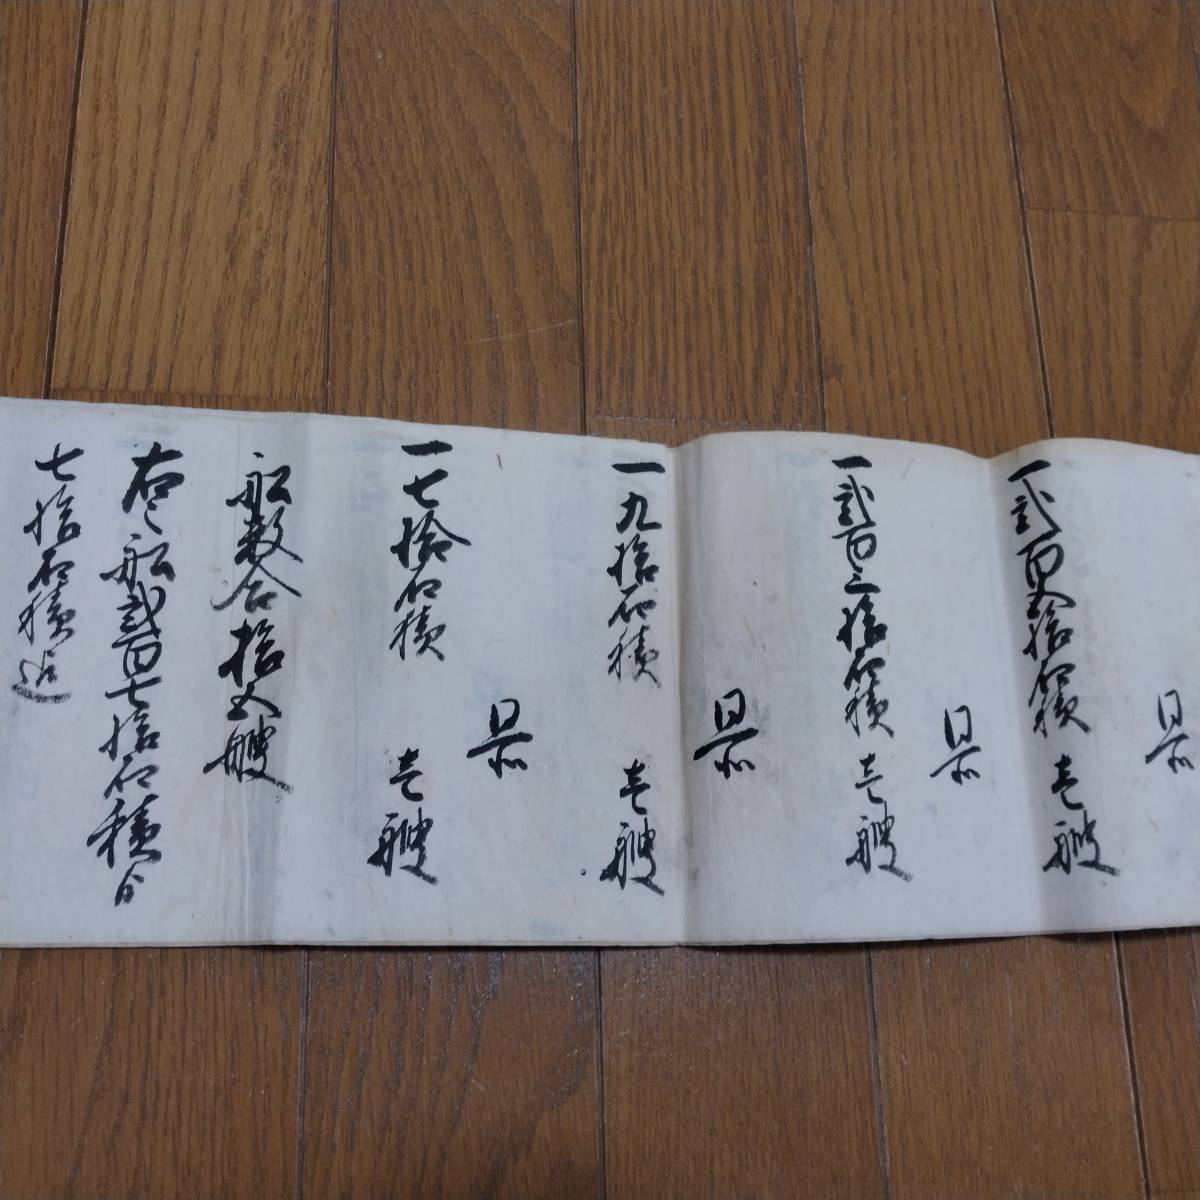 一弐百五拾石積 壱艘
一弐百三拾石積 壱艘
一九拾石積 壱艘
一七拾石積 壱艘
舩数合拾五艘
右之舩弐百七拾石積ゟ
七拾石積迄